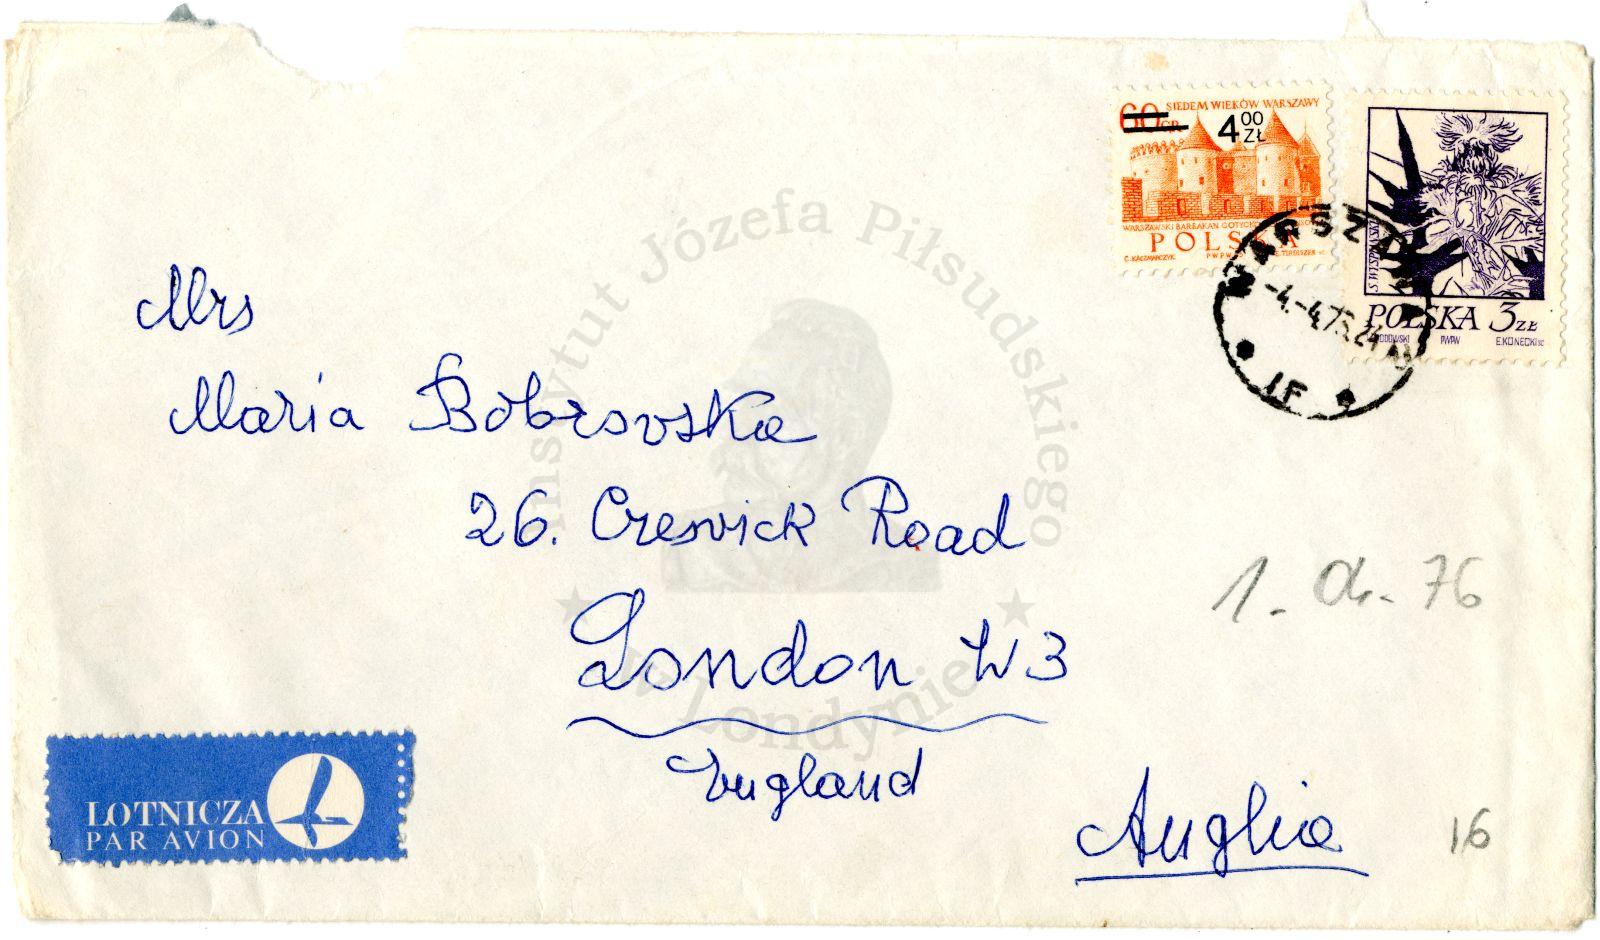 60 GR SIEDEM WIEKÓW WARSZAWY
4 00 ZŁ
WARSZAWSKI BARBAKAN
POLSKA
C. KACZMARCZYK
S. WYSPIAŃSKI
POLSKA 3 ZŁ
PWPW E. KONECKI SC
WARSZAWA
-4.-4.76.24
1F
Mrs
Maria Bobrovska
26. Cresvick Road
London W3
England
Anglia
1. 04. 76
16
LOTNICZA
PAR AVION
Instytut Józefa Piłsudskiego
w Londynie